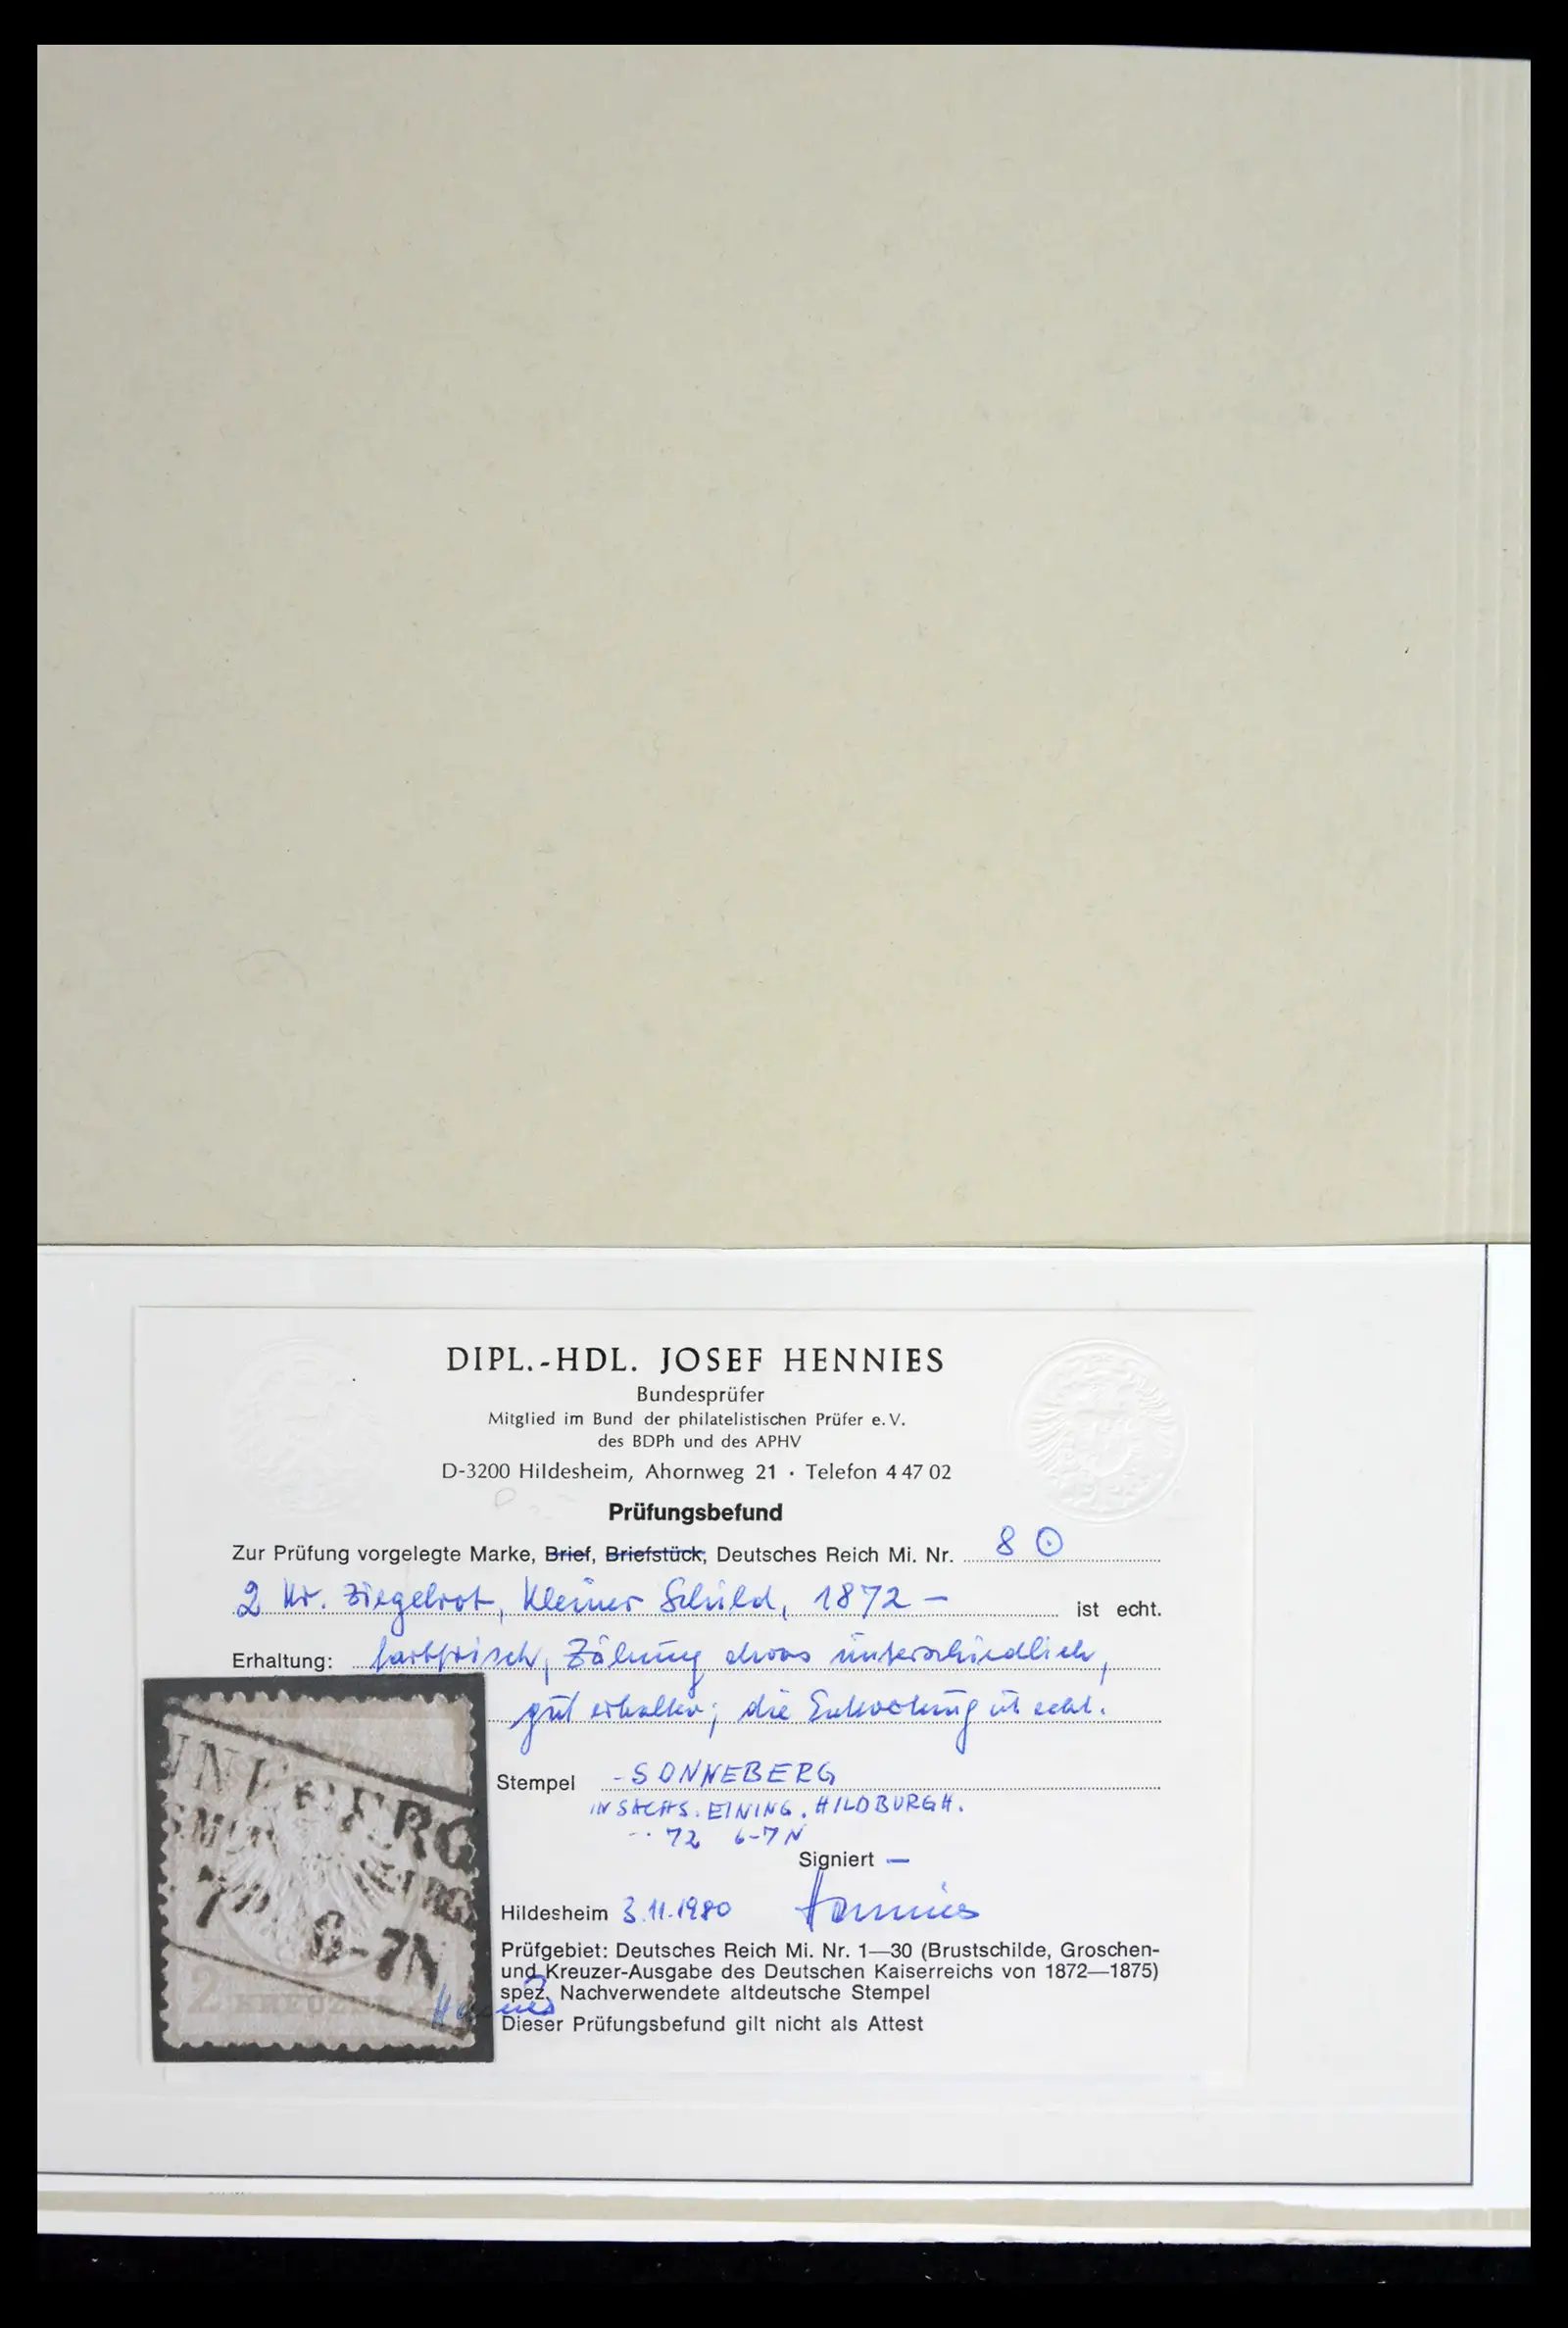 DIPL.-HDL. JOSEF HENNIES
Bundesprüfer
Mitglied im Bund der philatelistischen Prüfer e.V.
des BDPh und des APHV
D-3200 Hildesheim, Ahornweg 21 · Telefon 4 47 02
Prüfungsbefund
Zur Prüfung vorgelegte Marke, Brief, Briefstück, Deutsches Reich Mi. Nr. 8 ⊙
2 Kr. ziegelrot, Kleiner Schild, 1872 — ist echt.
Erhaltung: farbfrisch, Zähnung etwas unterschiedlich,
gut erhalten; die Entwertung ist echt.
Stempel - SONNEBERG
IN SACHS. EINING. HILDBURGH.
-- 72 6-7 N
Signiert —
Hildesheim 3.11.1980 Hennies
Prüfgebiet: Deutsches Reich Mi. Nr. 1—30 (Brustschilde, Groschen-
und Kreuzer-Ausgabe des Deutschen Kaiserreichs von 1872—1875)
spez. Nachverwendete altdeutsche Stempel
Dieser Prüfungsbefund gilt nicht als Attest
NNEBERG
6-7N
2 KREUZER
Hennies